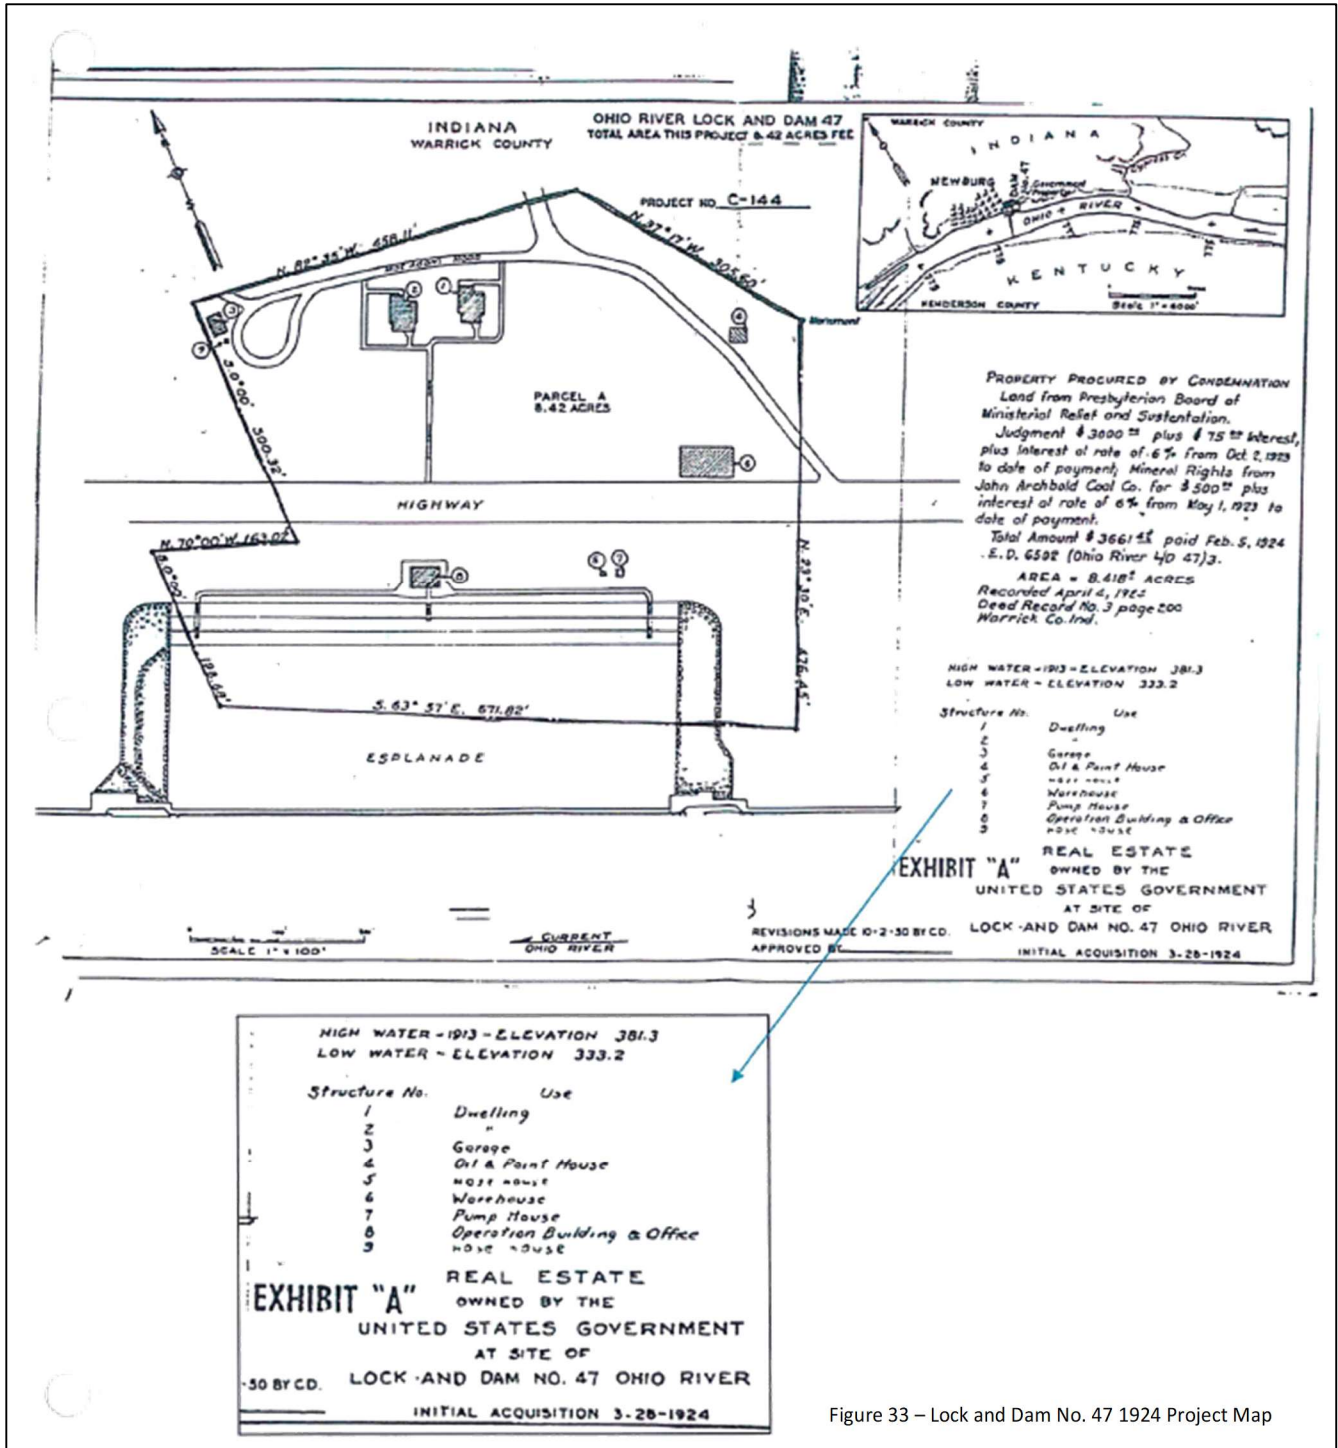 INDIANA
WARRICK COUNTY
OHIO RIVER LOCK AND DAM 47
TOTAL AREA THIS PROJECT 8.42 ACRES FEE
PROJECT NO. C-144
WARRICK COUNTY
INDIANA
Cypress Cr.
NEWBURG
DAM No. 47
Government Property
OHIO RIVER
777
776
775
778
779
KENTUCKY
HENDERSON COUNTY
Scale 1" = 4000'
N. 82° 35' W. 458.11'
N. 37° 17' W. 305.60'
Monument
3
2
1
4
9
S. 0° 00' 300.32'
PARCEL A
8.42 ACRES
6
HIGHWAY
N. 70° 00' W. 163.02'
S. 0° 00' 198.68'
8
5
7
N. 29° 30' E. 476.45'
S. 63° 57' E. 671.82'
ESPLANADE
PROPERTY PROCURED BY CONDEMNATION
Land from Presbyterian Board of
Ministerial Relief and Sustentation.
Judgment $3000 plus $75 Interest,
plus Interest at rate of 6% from Oct. 2, 1923
to date of payment; Mineral Rights from
John Archbold Coal Co. for $500 plus
interest at rate of 6% from May 1, 1923 to
date of payment.
Total Amount $3661 paid Feb. 5, 1924
E.D. 6502 (Ohio River L/D 47)3.
AREA = 8.418 ACRES
Recorded April 4,
Deed Record No. 3 page 200
Warrick Co. Ind.
HIGH WATER-1913-ELEVATION 381.3
LOW WATER - ELEVATION 333.2
Structure No. Use
1 Dwelling
2 "
3 Garage
4 Oil & Paint House
5 Hose House
6 Warehouse
7 Pump House
8 Operation Building & Office
9 Hose House
EXHIBIT "A"
REAL ESTATE
OWNED BY THE
UNITED STATES GOVERNMENT
AT SITE OF
LOCK AND DAM NO. 47 OHIO RIVER
INITIAL ACQUISITION 3-28-1924
SCALE 1" = 100'
CURRENT
OHIO RIVER
REVISIONS MADE 10-2-30 BY CD.
APPROVED BY
HIGH WATER-1913-ELEVATION 381.3
LOW WATER - ELEVATION 333.2
Structure No. Use
1 Dwelling
2 "
3 Garage
4 Oil & Paint House
5 Hose House
6 Warehouse
7 Pump House
8 Operation Building & Office
9 Hose House
EXHIBIT "A"
REAL ESTATE
OWNED BY THE
UNITED STATES GOVERNMENT
AT SITE OF
-30 BY CD.
LOCK AND DAM NO. 47 OHIO RIVER
INITIAL ACQUISITION 3-28-1924
Figure 33 – Lock and Dam No. 47 1924 Project Map